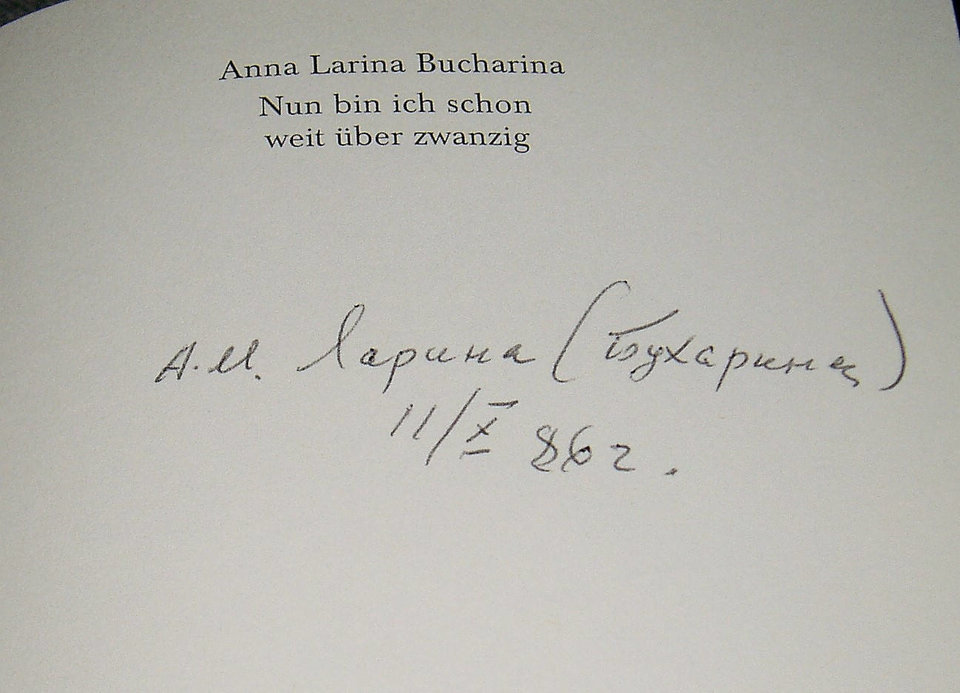 Anna Larina Bucharina
Nun bin ich schon
weit über zwanzig
А.М. Ларина (Бухарина)
11/X 86 г.